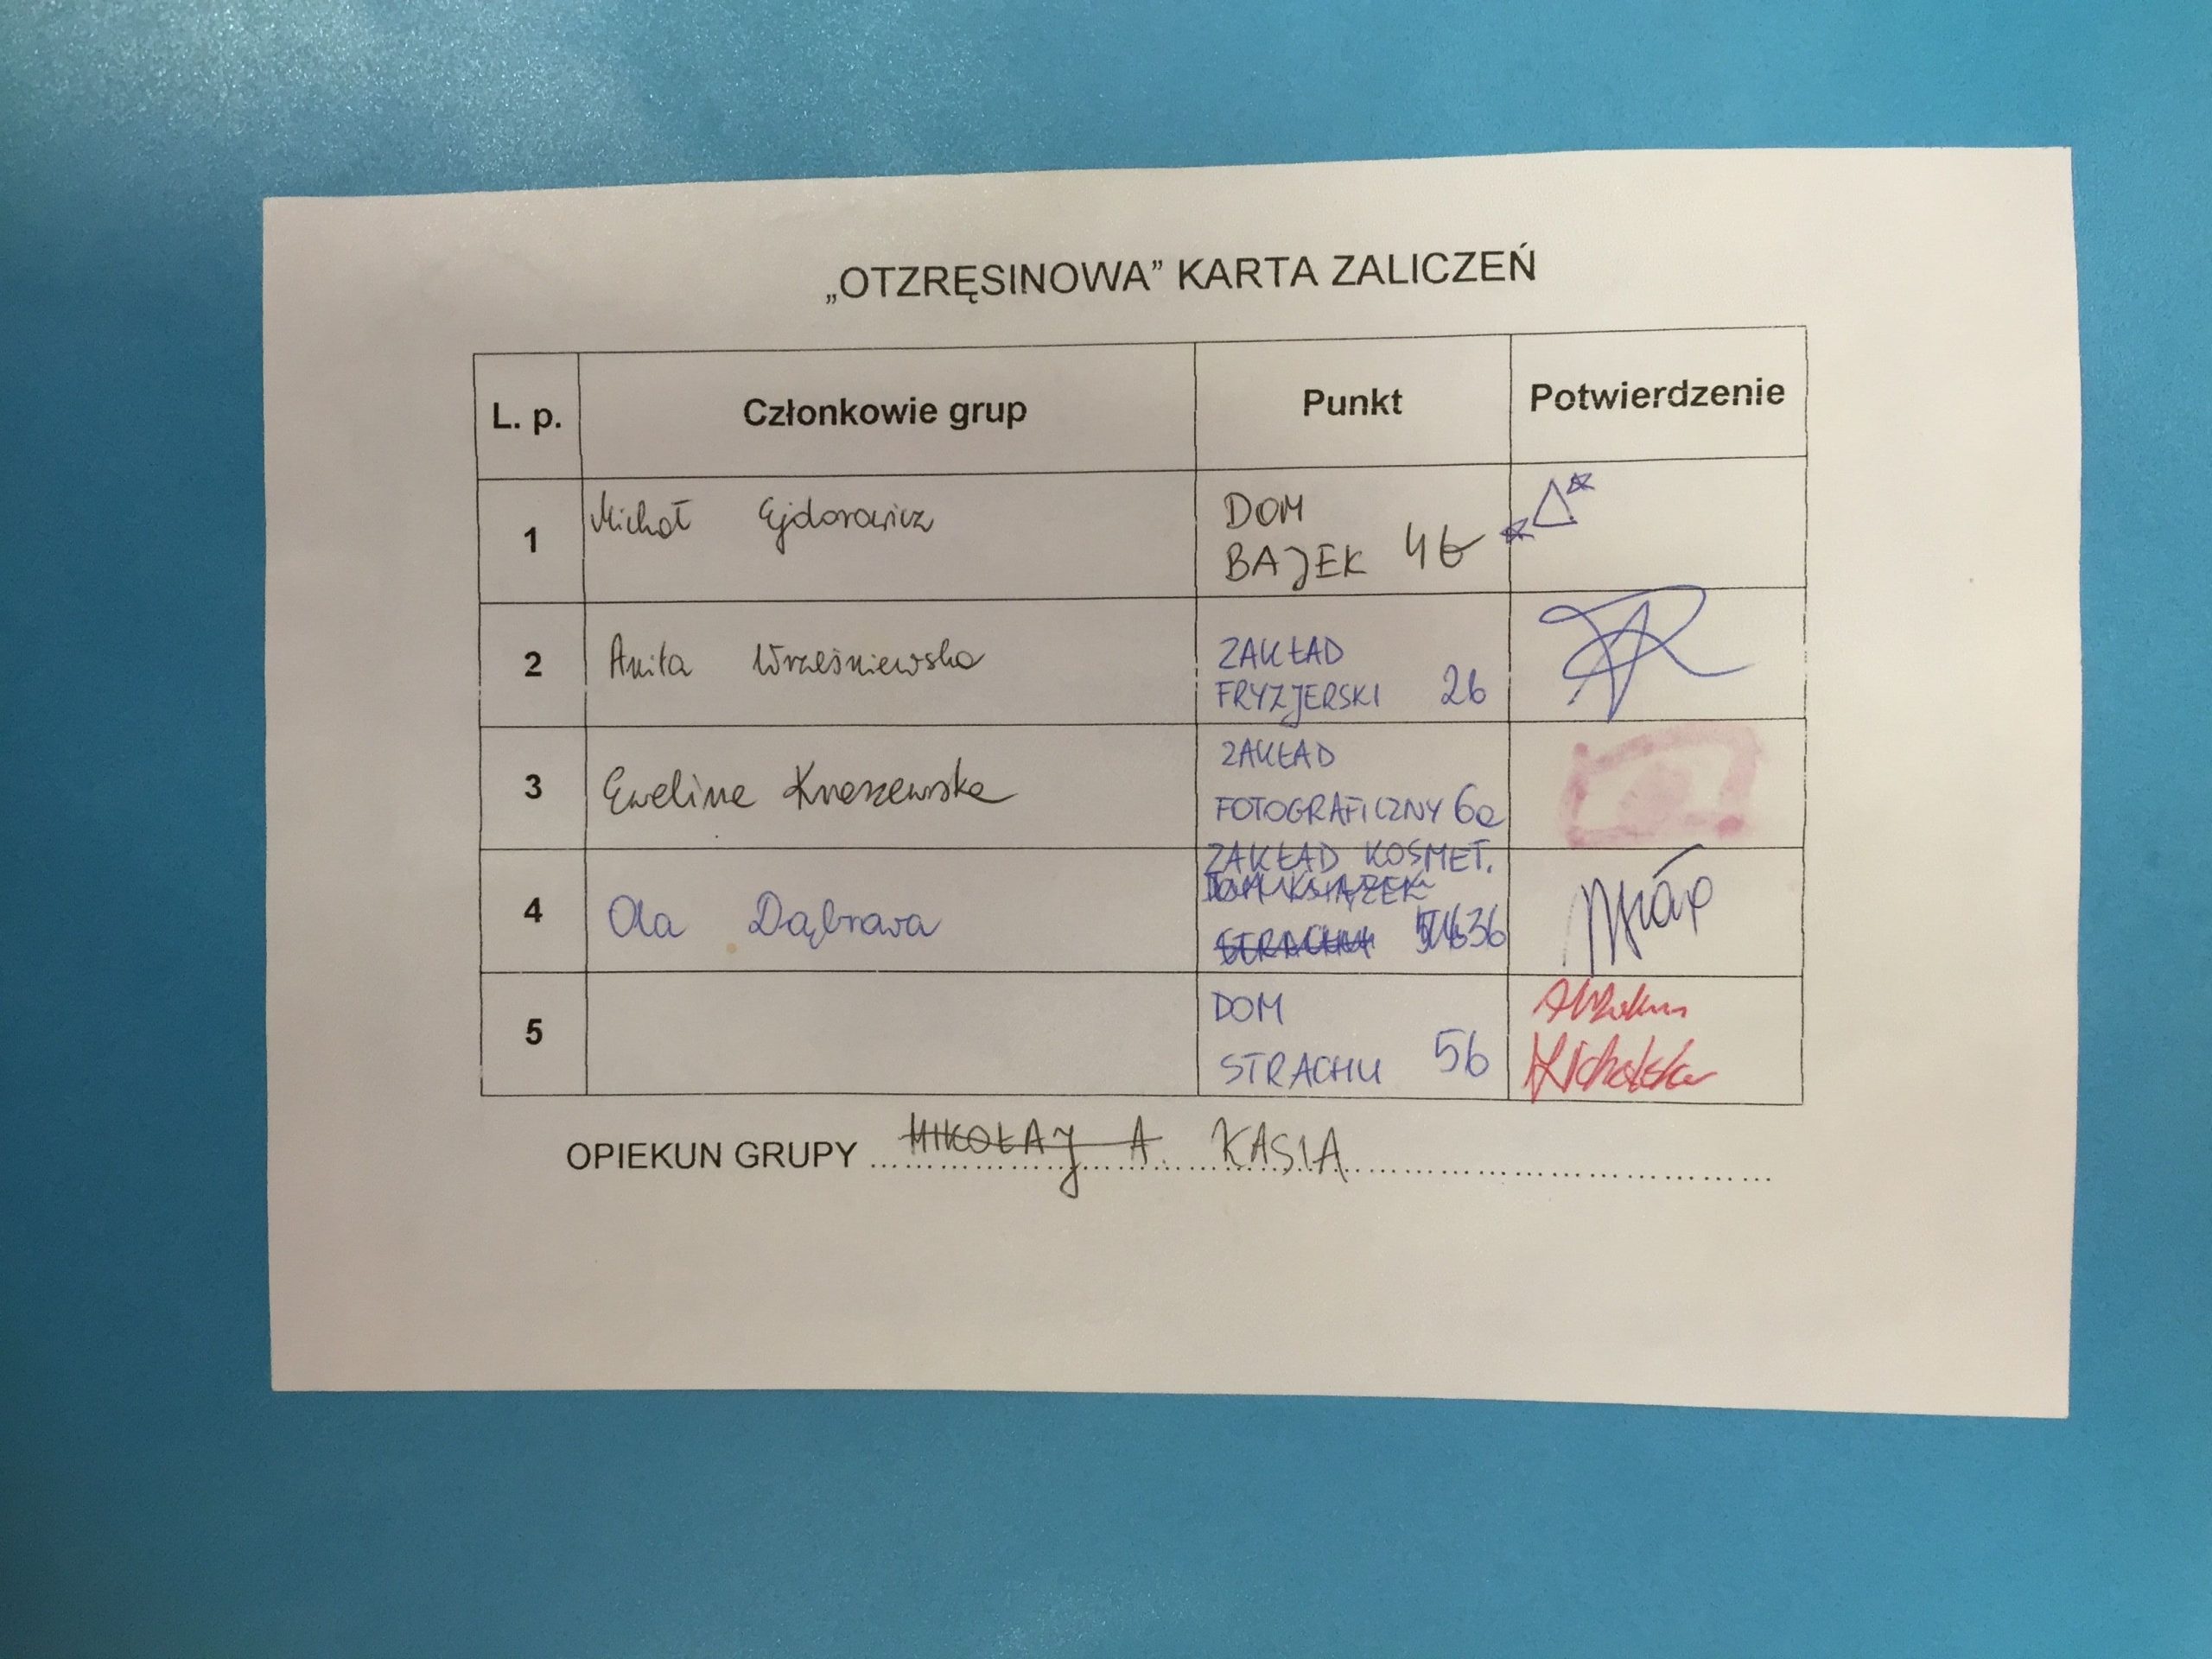 „OTZRĘSINOWA” KARTA ZALICZEŃ
L. p. Członkowie grup Punkt Potwierdzenie
1 Michał Ejdorowicz DOM
BAJEK 4b
2 Anita Wrześniewska ZAKŁAD
FRYZJERSKI 2b
3 Ewelina ZAKŁAD
FOTOGRAFICZNY 6a
4 Ola Dąbrowa ZAKŁAD KOSMET.
3b
5 DOM
STRACHU 5b
OPIEKUN GRUPY MIKOŁAJ A. KASIA